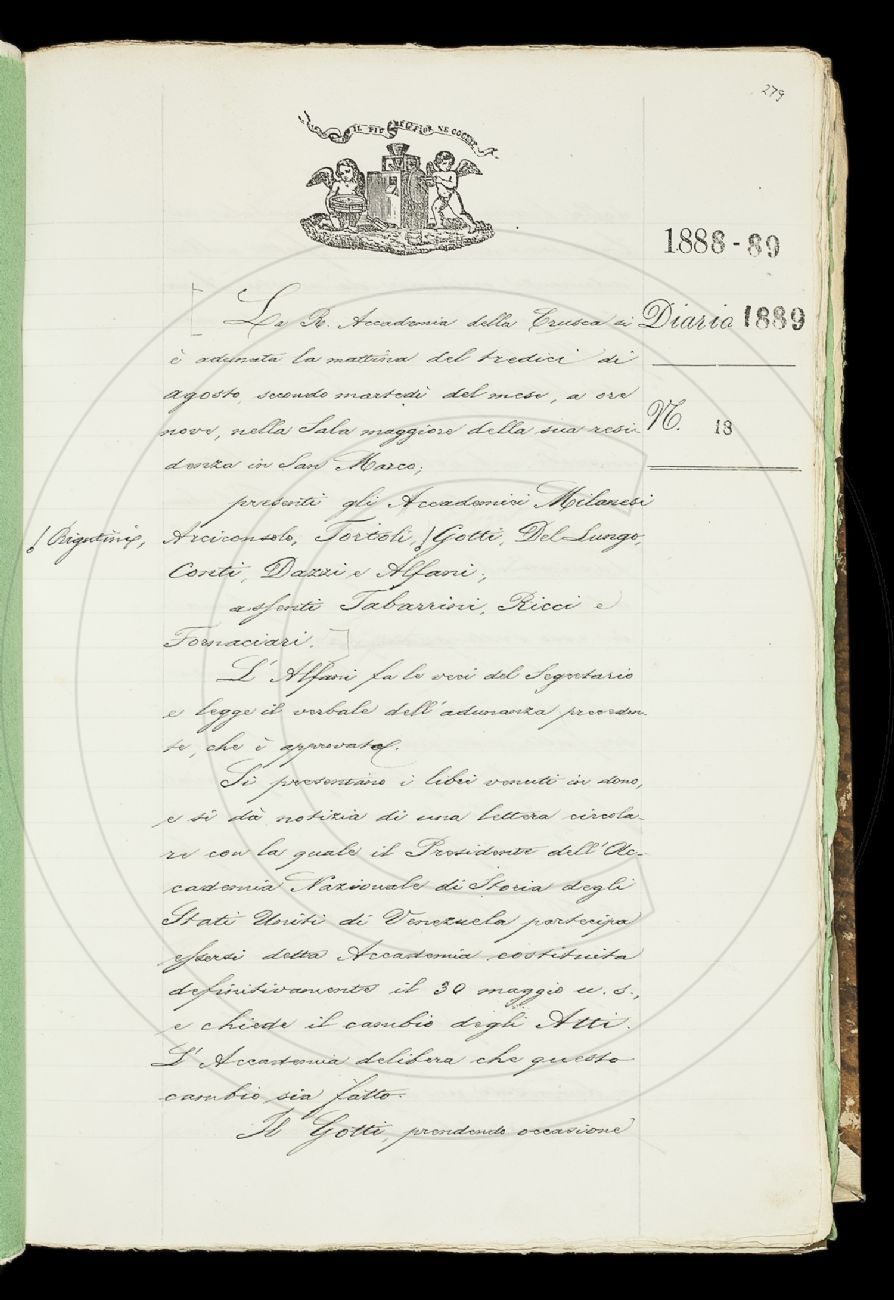 279
IL PIÙ BEL FIOR NE COGLIE
1888-89
Diario 1889
N. 13
La R. Accademia della Crusca si
è adunata la mattina del tredici di
agosto, secondo martedì del mese, a ore
nove, nella Sala maggiore della sua resi-
denza in San Marco;
presenti gli Accademici Milanesi
Arciconsolo, Tortoli, Gotti, Del Lungo,
Rigutini,
Conti, Dazzi e Alfani;
assenti Tabarrini, Ricci e
Fornaciari.
L'Alfani fa le veci del Segretario
e legge il verbale dell'adunanza preceden-
te, che è approvato.
Si presentano i libri venuti in dono,
e si dà notizia di una lettera circola-
re con la quale il Presidente dell'Ac-
cademia Nazionale di Storia degli
Stati Uniti di Venezuela partecipa
essersi detta Accademia costituita
definitivamente il 30 maggio u. s.,
e chiede il cambio degli Atti.
L'Accademia delibera che questo
cambio sia fatto.
Il Gotti, prendendo occasione